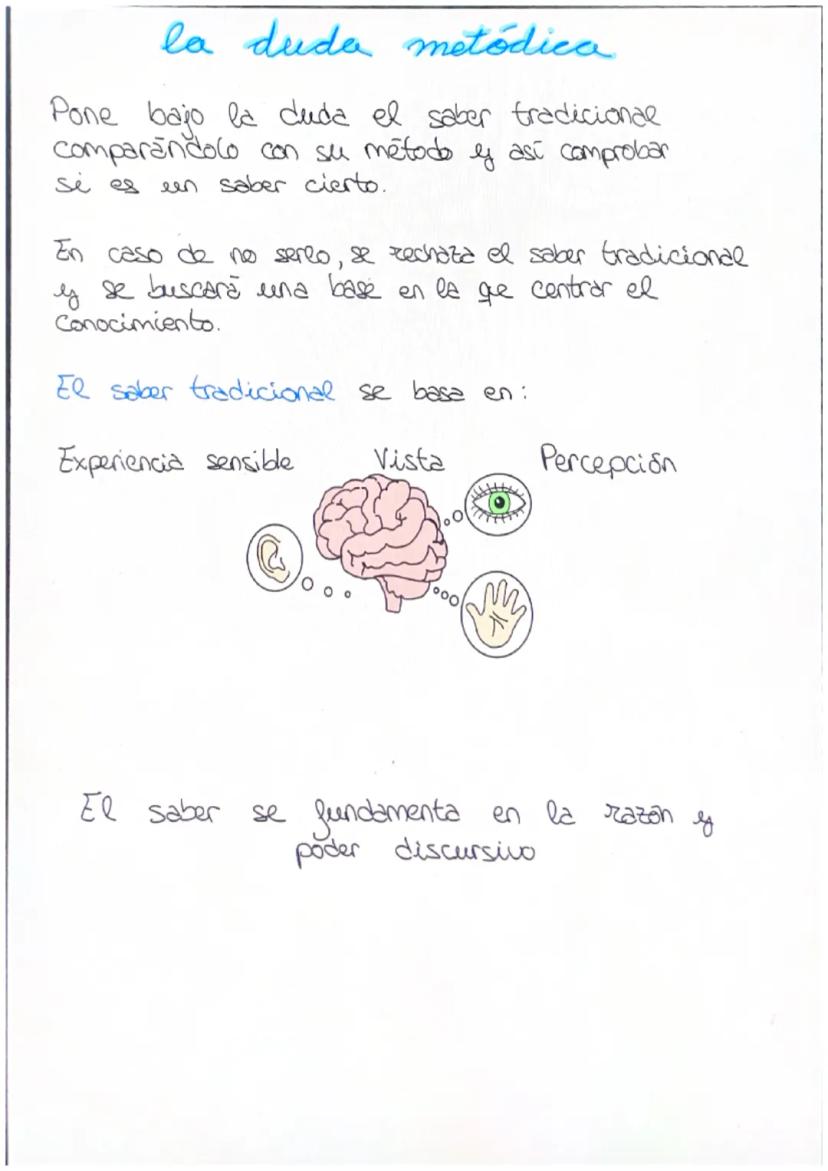 la duda metódica
Pone bajo la duda el saber tradicional
comparándolo con su método y así comprobar
si es un saber cierto.
En caso de no serlo, se rechaza el saber tradicional
y se buscará una base en la qe centrar el
conocimiento.
El saber tradicional se basa en:
Experiencia sensible Vista Percepción
El saber se fundamenta en la razón y
poder discursivo